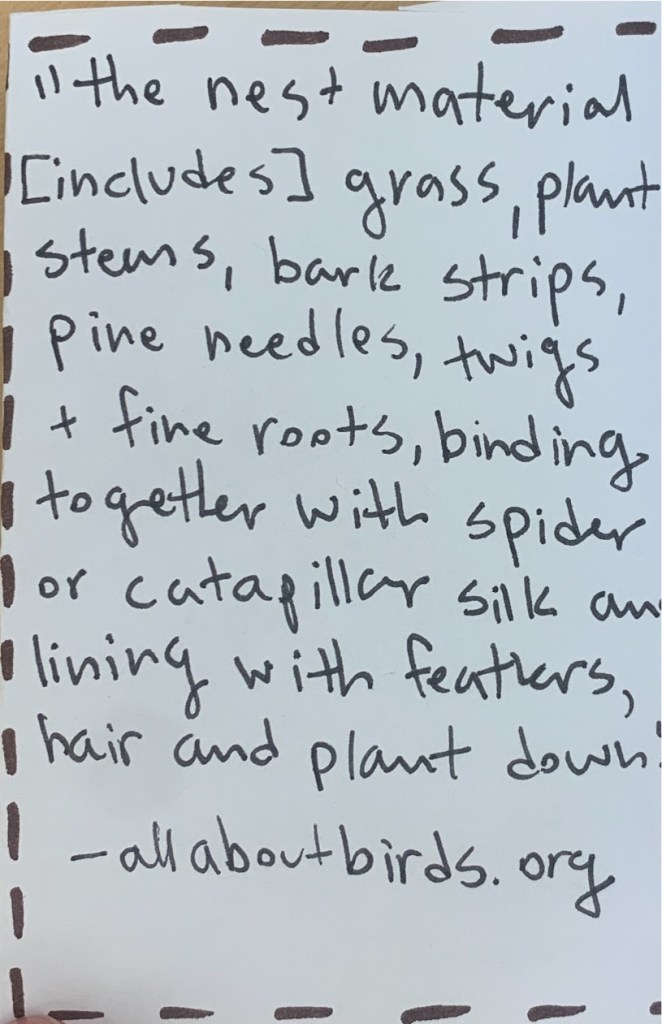 "the nest material
[includes] grass, plant
stems, bark strips,
pine needles, twigs
+ fine roots, binding
together with spider
or catapillar silk an
lining with feathers,
hair and plant down"
-allaboutbirds.org